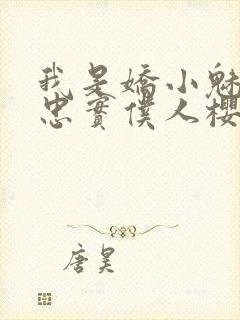 我是嬌小魅
忠實僕人櫻
唐昊